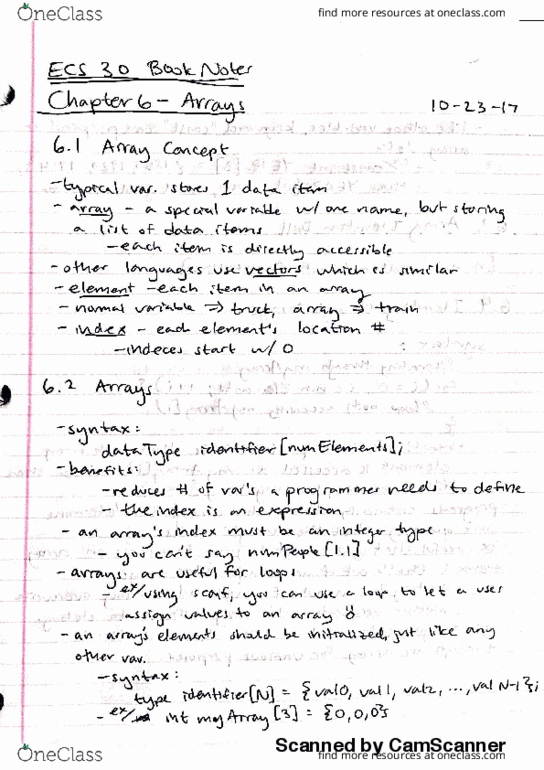 OneClass
find more resources at oneclass.com
ECS 30 Book Notes
Chapter 6 - Arrays
10-23-17
6.1 Array Concept
- typical var. stores 1 data item
- array - a special variable w/ one name, but storing
a list of data items
- each item is directly accessible
- other languages use vectors which is similar
- element - each item in an array
- normal variable ⇒ truck, array ⇒ train
- index - each element's location #
- indeces start w/ 0
6.2 Arrays
- syntax:
dataType identifier[numElements];
- benefits:
- reduces # of var's a programmer needs to define
- the index is an expression
- an array's index must be an integer type
- you can't say numPeople[1.1]
- arrays are useful for loops
- ex/ using scanf, you can use a loop to let a user
assign values to an array
- an array's elements should be initialized, just like any
other var.
- syntax:
type identifier[N] = {val0, val1, val2, ..., valN-1};
- ex/ int myArray[3] = {0,0,0}
Scanned by CamScanner
OneClass
find more resources at oneclass.com